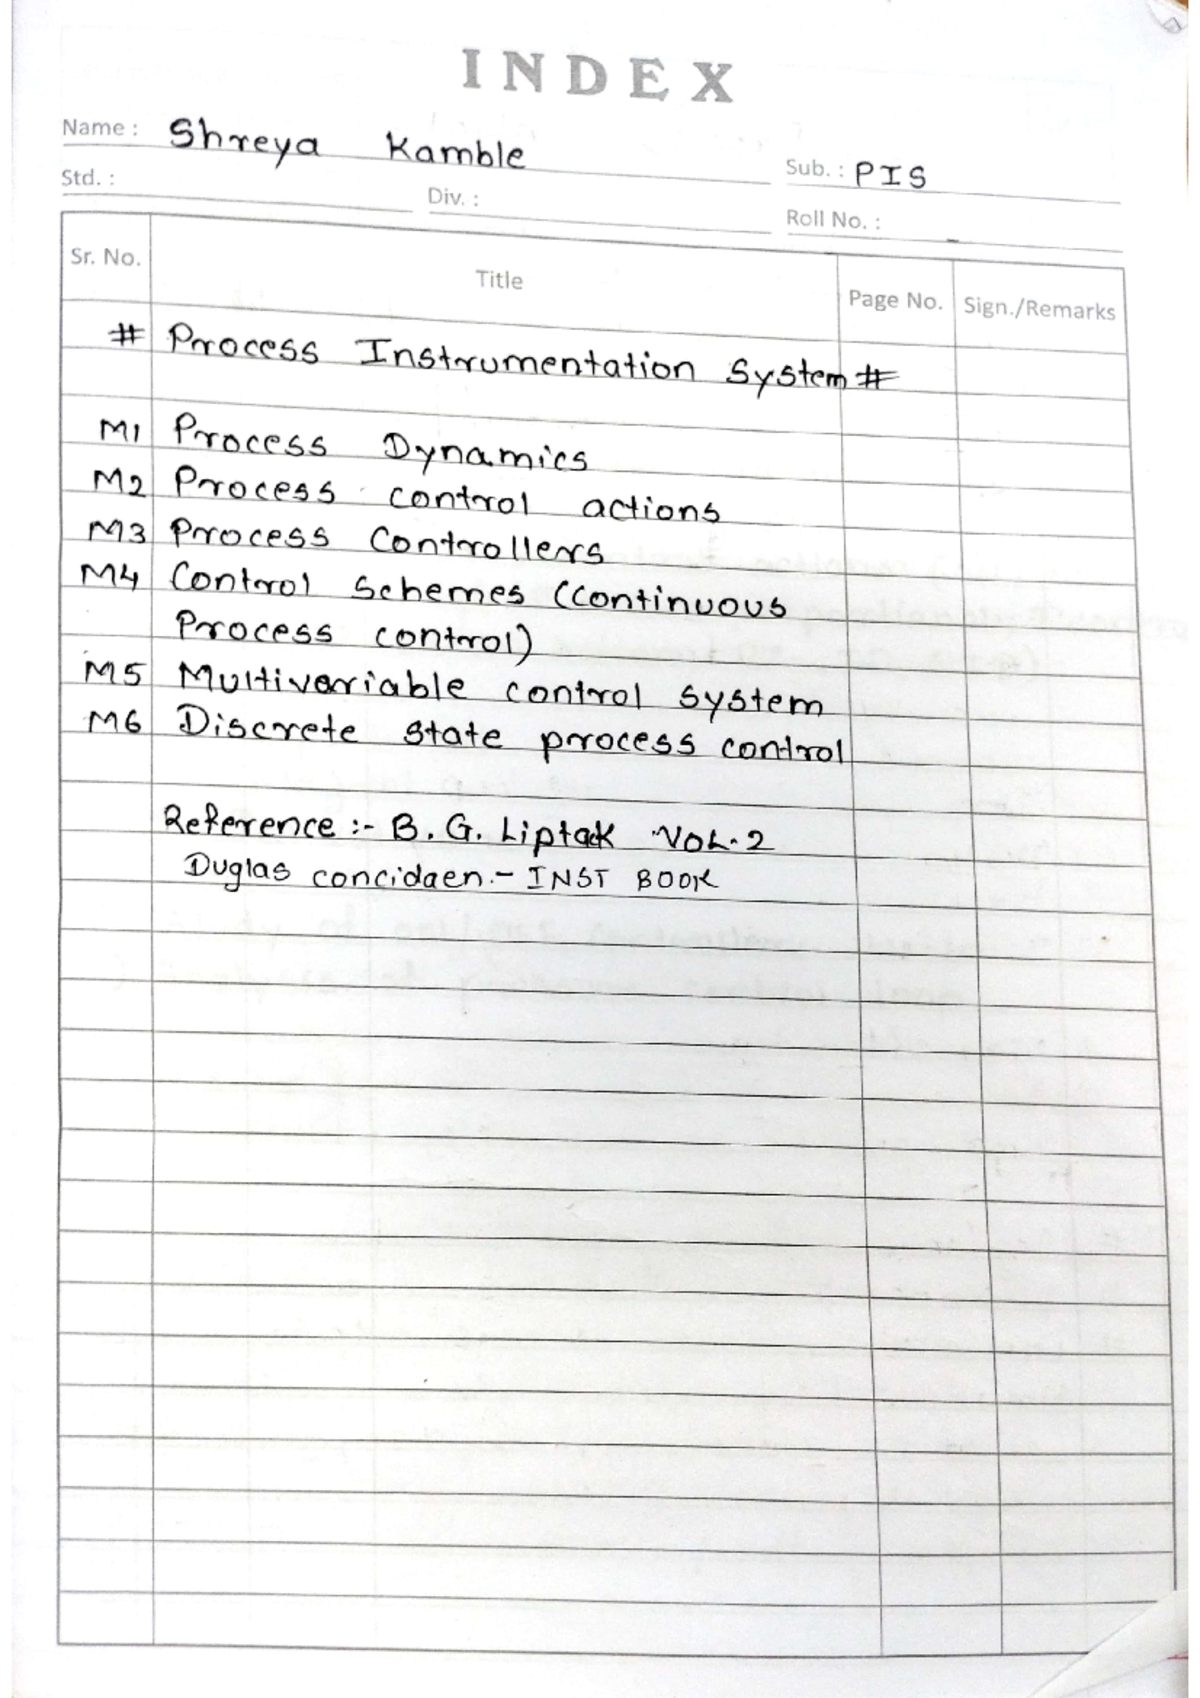 INDEX
Name : Shreya Kamble
Sub. : PIS
Std. :
Div. :
Roll No. :
Sr. No. Title Page No. Sign./Remarks
# Process Instrumentation System #
M1 Process Dynamics
M2 Process control actions
M3 Process Controllers
M4 Control Schemes (Continuous
Process control)
M5 Multivariable control system
M6 Discrete state process control
Reference :- B. G. Liptak VOL. 2
Duglas concidaen.- INST BOOK